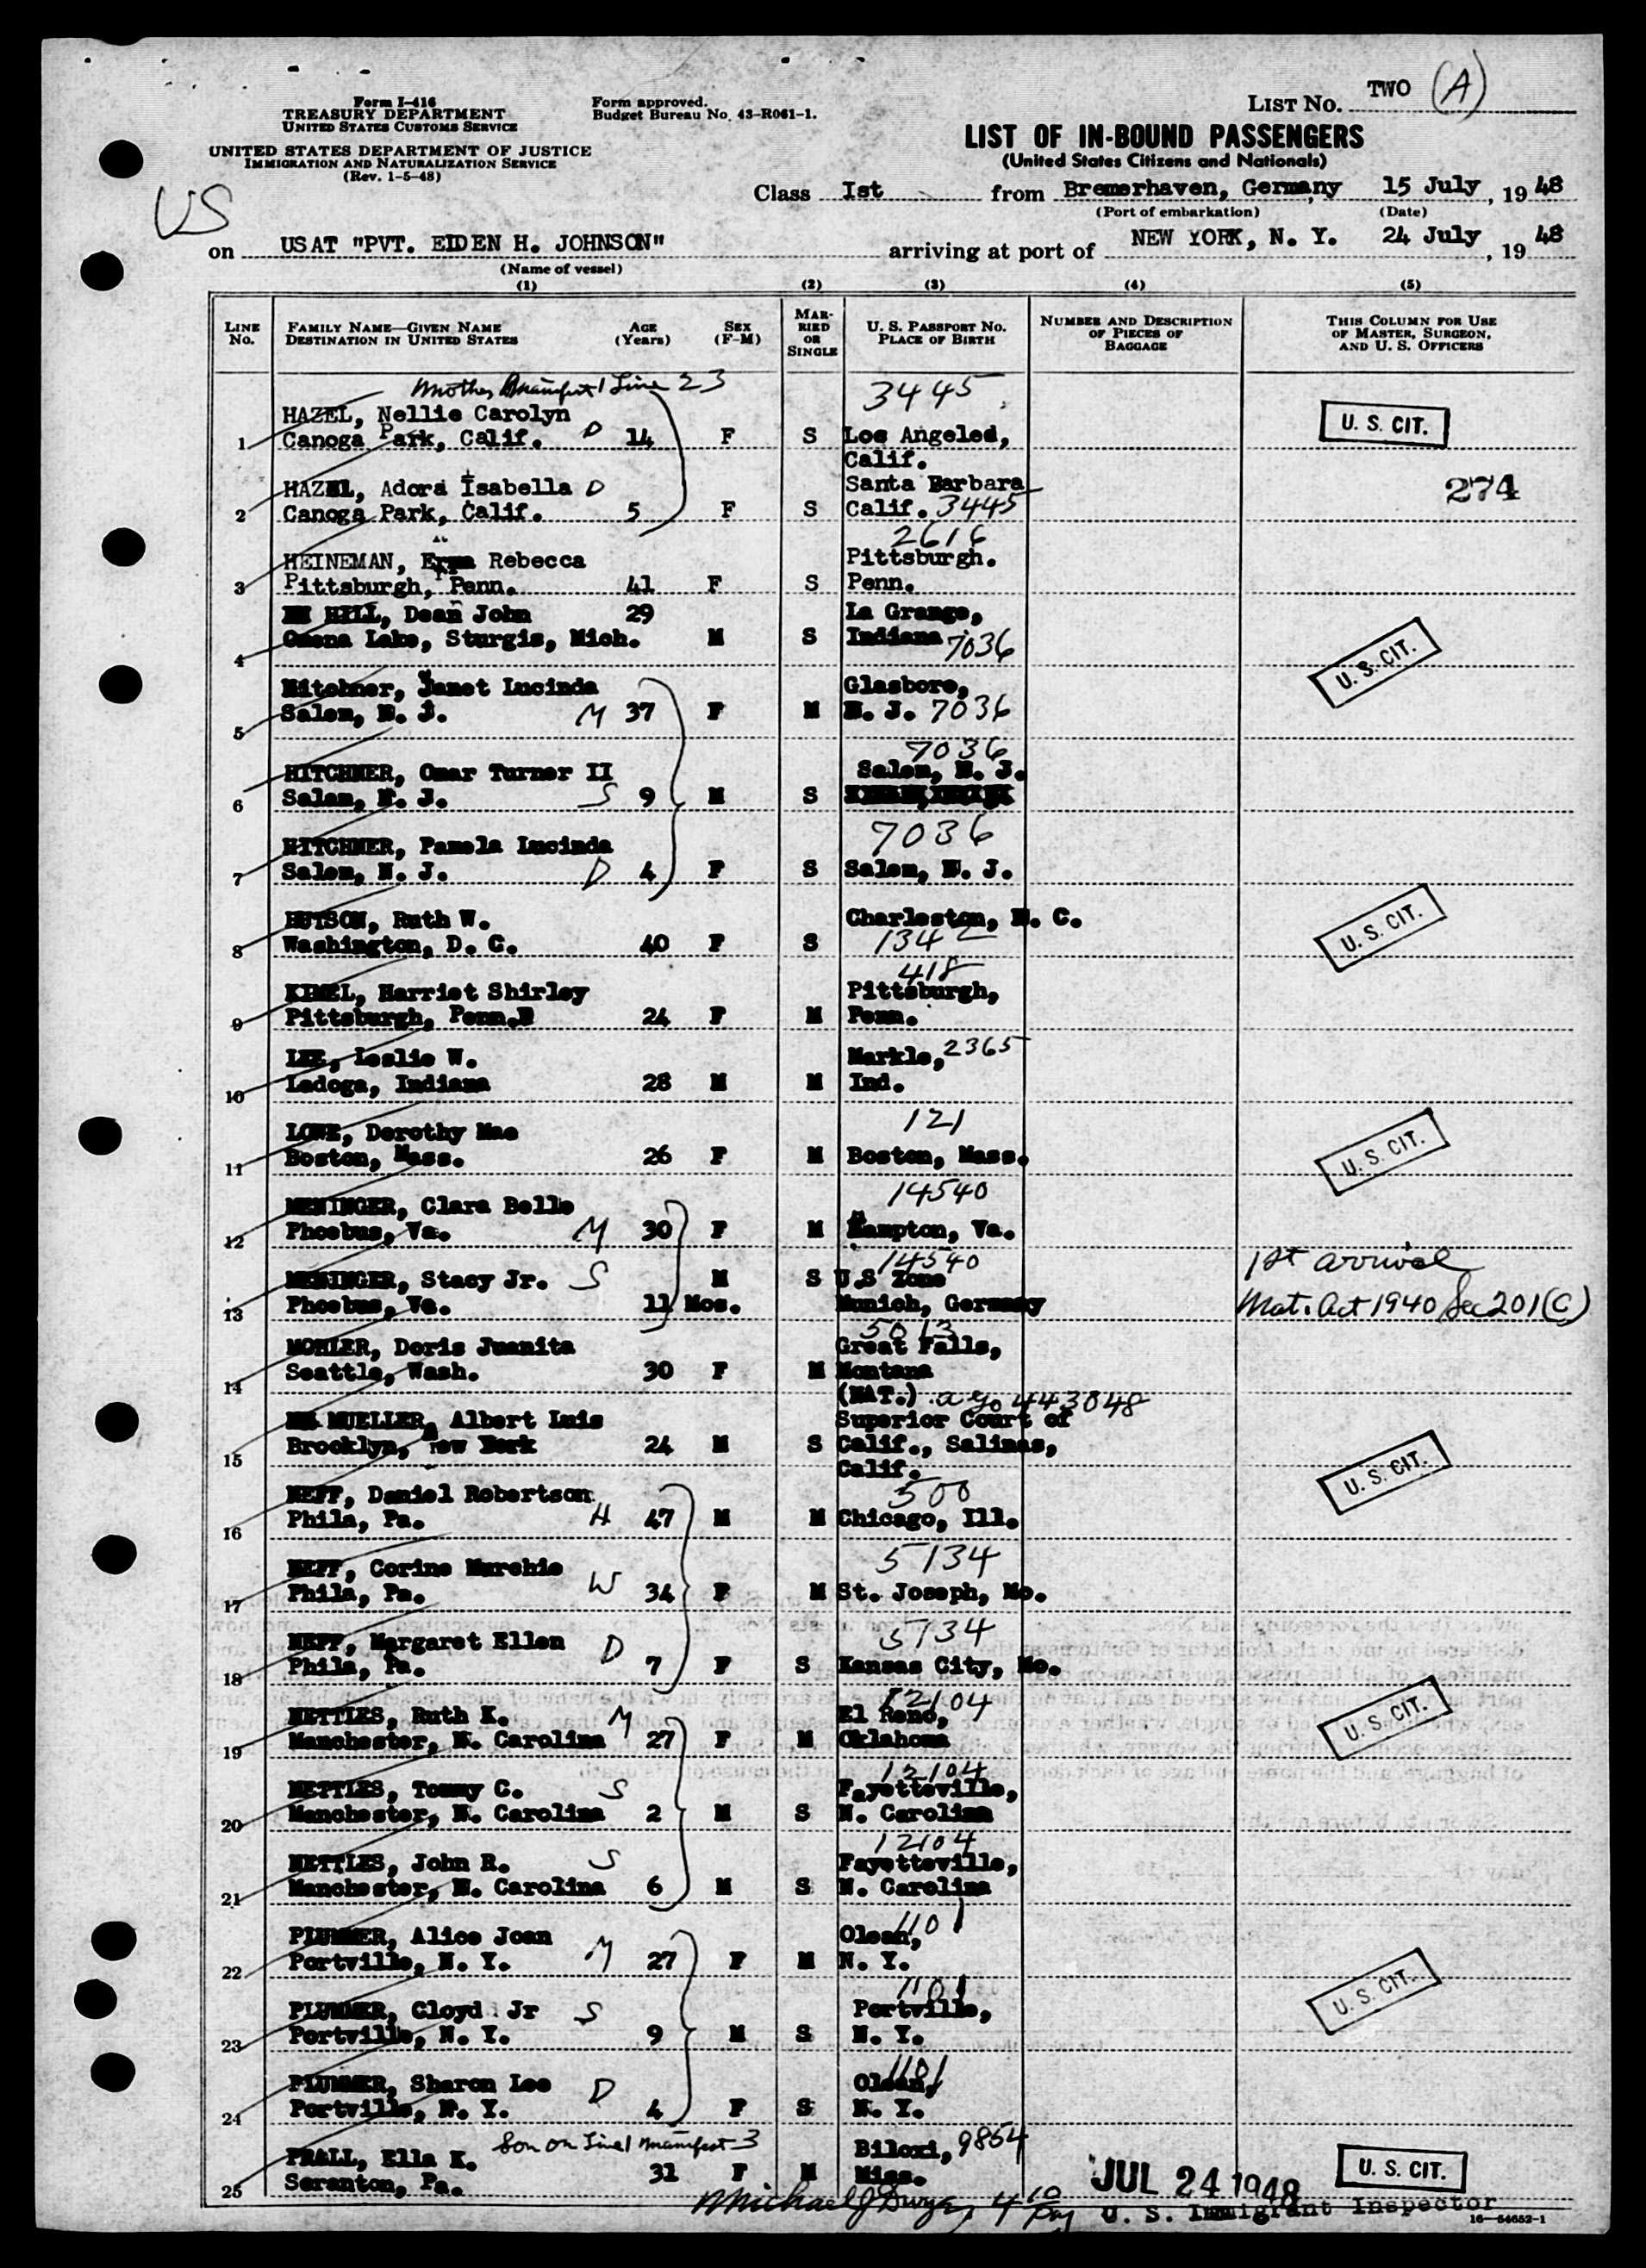 LIST NO. TWO (A)
Form I-416
TREASURY DEPARTMENT
UNITED STATES CUSTOMS SERVICE
Form approved.
Budget Bureau No. 43-R061-1.
UNITED STATES DEPARTMENT OF JUSTICE
IMMIGRATION AND NATURALIZATION SERVICE
(Rev. 1-5-48)
LIST OF IN-BOUND PASSENGERS
(United States Citizens and Nationals)
US
Class Ist from Bremerhaven, Germany 15 July, 1948
(Port of embarkation) (Date)
on USAT "PVT. EIDEN H. JOHNSON" arriving at port of NEW YORK, N. Y. 24 July, 1948
(Name of vessel)
(1) (2) (3) (4) (5)
LINE NO.
FAMILY NAME—GIVEN NAME
DESTINATION IN UNITED STATES
AGE (Years)
SEX (F-M)
MARRIED OR SINGLE
U. S. PASSPORT NO.
PLACE OF BIRTH
NUMBER AND DESCRIPTION OF PIECES OF BAGGAGE
THIS COLUMN FOR USE OF MASTER, SURGEON, AND U. S. OFFICERS
Mother Manifest 1 Line 23 3445
HAZEL, Nellie Carolyn
1 Canoga Park, Calif. D 14 F S Los Angeled, U. S. CIT.
Calif.
HAZEL, Adora Isabella D Santa Barbara 274
2 Canoga Park, Calif. 5 F S Calif. 3445
2616
HEINEMAN, Rebecca Pittsburgh.
3 Pittsburgh, Penn. 41 F S Penn.
HILL, Dean John 29 La Grange,
4 Lake, Sturgis, Mich. M S Indiana 7036 U. S. CIT.
Hitchner, Janet Lucinda Glasboro,
5 Salem, N. J. M 37 F M N. J. 7036
7036
HITCHNER, Omar Turner II Salem, N. J.
6 Salem, N. J. S 9 M S
7036
HITCHNER, Pamela Lucinda
7 Salem, N. J. D 4 F S Salem, N. J.
HUTSON, Ruth W. Charleston, C. U. S. CIT.
8 Washington, D. C. 40 F S 1342
418
KIMEL, Harriet Shirley Pittsburgh,
9 Pittsburgh, Penn. 24 F M Penn.
LEE, Leslie W. Markle, 2365
10 Ladoga, Indiana 28 M M Ind.
121
LOWE, Dorothy Mae
11 Boston, Mass. 26 F M Boston, Mass. U. S. CIT.
14540
MENINGER, Clara Belle
12 Phoebus, Va. M 30 F M Hampton, Va.
14540 1st arrival
MENINGER, Stacy Jr. S M S U.S Zone
13 Phoebus, Va. 11 Mos. Munich, Germany Nat. Act 1940 Sec 201(C)
5013
MOHLER, Doris Juanita Great Falls,
14 Seattle, Wash. 30 F M Montana
(NAT.) ago 443048
MUELLER, Albert Luis Superior Court of
15 Brooklyn, New York 24 M S Calif., Salinas, U. S. CIT.
Calif.
500
NEFF, Daniel Robertson
16 Phila, Pa. H 47 M M Chicago, Ill.
5134
NEFF, Corine Murchie
17 Phila, Pa. W 34 F M St. Joseph, Mo.
5134
NEFF, Margaret Ellen
18 Phila, Pa. D 7 F S Kansas City, Mo.
12104
NETTLES, Ruth K. M El Reno, U. S. CIT.
19 Manchester, N. Carolina 27 F M Oklahoma
12104
NETTLES, Tommy C. S Fayetteville,
20 Manchester, N. Carolina 2 M S N. Carolina
12104
NETTLES, John R. S Fayetteville,
21 Manchester, N. Carolina 6 M S N. Carolina
1101
PLUMMER, Alice Joan Olean,
22 Portville, N. Y. M 27 F M N. Y.
1101
PLUMMER, Cloyd Jr S Portville, U. S. CIT.
23 Portville, N. Y. 9 M S N. Y.
1101
PLUMMER, Sharon Lee D Olean,
24 Portville, N. Y. 4 F S N. Y.
Son on Line 1 manifest 3
PRALL, Ella K. Biloxi, 9854
25 Scranton, Pa. 31 F M Miss. U. S. CIT.
JUL 24 1948
Michael J Dwyer
U. S. Immigrant Inspector
16—54652-1